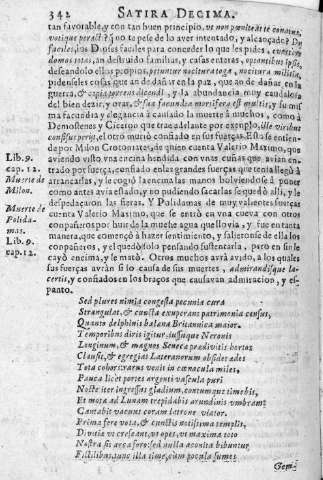 342 SATIRA DECIMA.
tan favorable, y con tan buen principio, ut non pœniteat te conatus,
votique peracti? no te pese de lo aver intentado, y alcançado? Di
faciles, los Dioses faciles para conceder lo que les pides,
domos totas, an destruido familias, y casas enteras, optantibus ipsis,
deseandolo ellos propios, petuntur nocitura toga, nocitura militia,
pidenseles cosas que an de dañar en la paz, que an de dañar en la
guerra, & torrens dicendi, y la abundancia muy caudalosa
del bien dezir, y orar, & sua facundia mortifera est multis, y su mis
ma facundia y elegancia à causado la muerte à muchos, como à
Demostenes y Ciceron que trae adelante por exemplo, ille viribus
confisus perijt, el otro murió confiado en sus fuerças. Esto se entien
de por Milon Crotoniates, de quien cuenta Valerio Maximo, que
Lib. 9. aviendo visto vna encina hendida con vnas cuñas que avian en-
cap. 12. trado por fuerça, confiado en las grandes fuerças que tenia llegó à
Muerte de arrancarlas, y le cogió la encina las manos bolviendose à poner
Milon. como antes avia estado, y no pudiendo sacarlas se quedó alli, y le
despedaçaron las fieras. Y Polidamas de muy valientes fuerças
Muerte de cuenta Valerio Maximo, que se entró en vna cueva con otros
Polida- conpañeros por huir de la mucha agua que llovia, y fue en tanta
mas. manera, que començó à hazer sentimiento, y salieronse de ella los
Lib. 9. conpañeros, y el quedó solo pensando sustentarla, pero en fin le
cap. 12. cayó encima, y le mató. Otros muchos avrá avido, à los quales
sus fuerças avrán sido causa de sus muertes, admirandisque la-
certis, y confiados en los braços que causavan admiracion, y es-
panto.
Sed plures nimia congesta pecunia cura
Strangulat, & cuncta exuperans patrimonia census,
Quanto delphinis balæna Britannica maior.
Temporibus diris igitur, iussuque Neronis
Longinum, & magnos Senecæ prædivitis hortos
Clausit, & egregias Lateranorum obsidet ædes
Tota cohors: rarus venit in cænacula miles,
Pauca licet portes argenti vascula puri
Nocte iter ingressus gladium, contumque timebis,
Et motæ ad Lunam trepidabis arundinis vmbram:
Cantabit vacuus coram latrone viator.
Prima fere vota, & cunctis notissima templis,
Divitiæ vt crescant, vt opes, vt maxima toto
Nostra sit arca foro: sed nulla aconita bibuntur
Fictilibus, tunc illa time, cum pocula sumes
Gem-